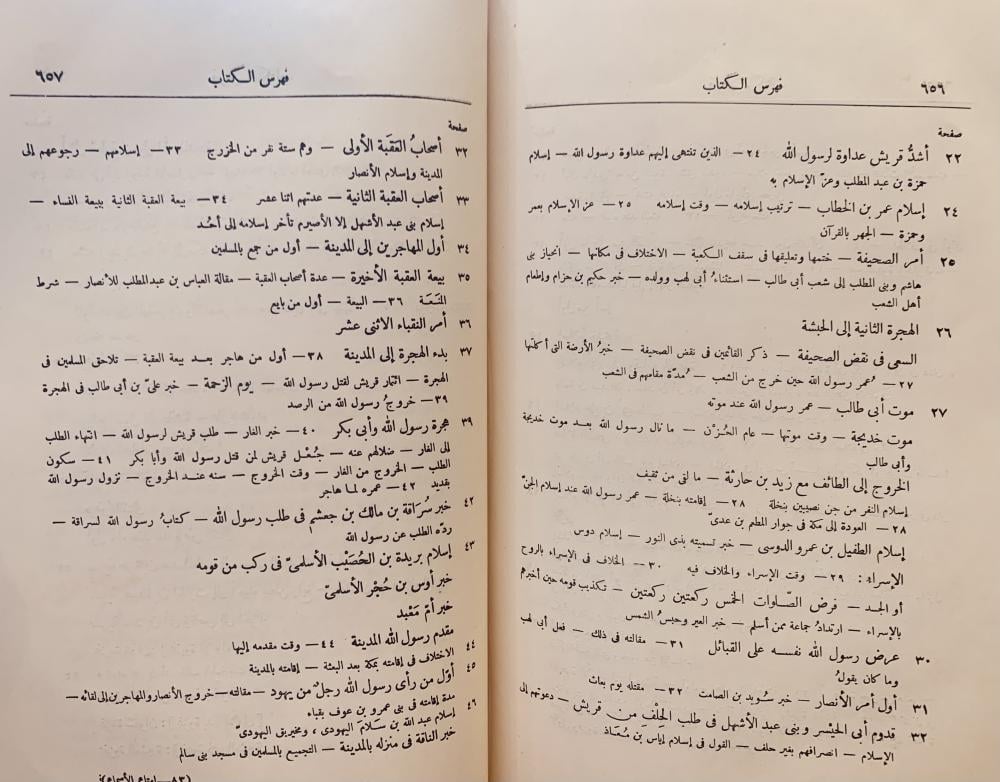 ٦٥٦
فهرس الكتاب
صفحة
٢٢ أشدُّ قريش عداوة لرسول الله ٢٤ — الذين تنتهى إليهم عداوة رسول الله — إسلام
حمزة بن عبد المطلب وعزّ الإسلام به
٢٤ إسلام عمر بن الخطاب — ترتيب إسلامه — وقت إسلامه ٢٥ — عز الإسلام بعمر
وحمزة — الجهر بالقرآن
٢٥ أمر الصحيفة — ختمها وتعليقها فى سقف الكعبة — الاختلاف فى مكانها — انحياز بنى
هاشم وبنى المطلب إلى شعب أبى طالب — استثناءُ أبى لهب وولده — خبر حكيم بن حزام وإطعام
أهل الشعب
٢٦ الهجرة الثانية إلى الحبشة
السعى فى نقض الصحيفة — ذكر القائمين فى نقض الصحيفة — خبرُ الأرضة التى أكلتها
٢٧ — عُمر رسول الله حين خرج من الشعب — مُدّة مقامهم فى الشعب
٢٧ موت أبى طالب — عمر رسول الله عند موته
موت خديجة — وقت موتها — عام الحُزْن — ما نال رسول الله بعد موت خديجة
وأبى طالب
الخروج إلى الطائف مع زيد بن حارثة — ما لقى من ثقيف
إسلام النفر من جن نصيبين بنخلة ٢٨ — إقامته بنخلة — عمر رسول الله عند إسلام الجنّ
٢٨ — العودة إلى مكة فى جوار المطعم بن عدىّ
إسلام الطفيل بن عمرو الدوسى — خبر تسميته بذى النور — إسلام دوس
الإسراء: ٢٩ — وقت الإسراء والخلاف فيه ٣٠ — الخلاف فى الإسراء بالروح
أو الجسد — فرض الصّلوات الخمس ركعتين ركعتين — تكذيب قومه حين أخبرهم
بالإسراء — ارتدادُ جماعة ممن أسلم — خبر العير وحبسُ الشمس
٣٠ عرض رسول الله نفسه على القبائل ٣١ — مقالته فى ذلك — فعل أبى لهب
وما كان يقولُ
٣١ أول أمر الأنصار — خبر سُويد بن الصامت ٣٢ — مقتله يوم بعاث
٣٢ قدوم أبى الحَيْسر وبنى عبد الأشهل فى طلب الحِلْف من قريش — دعوتهم إلى
الإسلام — انصرافهم بغير حلف — القول فى إسلام إياس بن مُعاذ
فهرس الكتاب
٦٥٧
صفحة
٣٢ أصحابُ العَقَبة الأولى — وهم ستة نفر من الخزرج ٣٣ — إسلامهم — رجوعهم إلى
المدينة وإسلام الأنصار
٣٣ أصحاب العقبة الثانية — عدتهم اثنا عشر ٣٤ — بيعة العقبة الثانية ببيعة النساء —
إسلام بنى عبد الأشهل إلا الأصيرم تأخر إسلامه إلى أحُد
٣٤ أول المهاجرين إلى المدينة — أول من جمع بالمسلمين
٣٥ بيعة العقبة الأخيرة — عدة أصحاب العقبة — مقالة العباس بن عبد المطلب للأنصار — شرط
المَنَعَة ٣٦ — البيعة — أول من بايع
٣٦ أمر النقباء الاثنى عشر
٣٧ بدء الهجرة إلى المدينة ٣٨ — أول من هاجر بعد بيعة العقبة — تلاحق المسلمين فى
الهجرة — ائتمار قريش لقتل رسول الله — يوم الزحمة — خبر علىّ بن أبى طالب فى الهجرة
٣٩ — خروجُ رسول الله من الرصد
٣٩ هجرة رسول الله وأبى بكر ٤٠ — خبر الغار — طلب قريش لرسول الله — انتهاء الطلب
إلى الغار — ضلالهم عنه — جُعْل قريش لمن قتل رسول الله وأبا بكر ٤١ — سكون
الطلب — الخروج من الغار — وقت الخروج — سنه عند الخروج — نزول رسول الله
بقديد ٤٢ — عمره لما هاجر
٤٢ خبر سُرَاقة بن مالك بن جعشم فى طلب رسول الله — كتابُ رسول الله لسراقة —
ردّه الطلب عن رسول الله
٤٣ إسلام بريدة بن الحُصَيْب الأسلمىّ فى ركب من قومه
خبر أوس بن حُجْر الأسلمىّ
خبر أمّ مَعْبد
مقدم رسول الله المدينة ٤٤ — وقت مقدمه إليها
٤٤ الاختلاف فى إقامته بمكة بعد البعثة — إقامته بالمدينة
٤٥ أوّل من رأى رسول الله رجلٌ من يهود — مقالته — خروج الأنصار والمهاجرين إلى لقائه —
مدة إقامته فى بنى عمرو بن عوف بقباء
٤٦ إسلام عبد الله بن سَلَام اليهودى، ومخيريق اليهودىّ
خبر الناقة فى منزله بالمدينة — التجميع بالمسلمين فى مسجد بنى سالم
(٨٣ — إمتاع الأسماع)